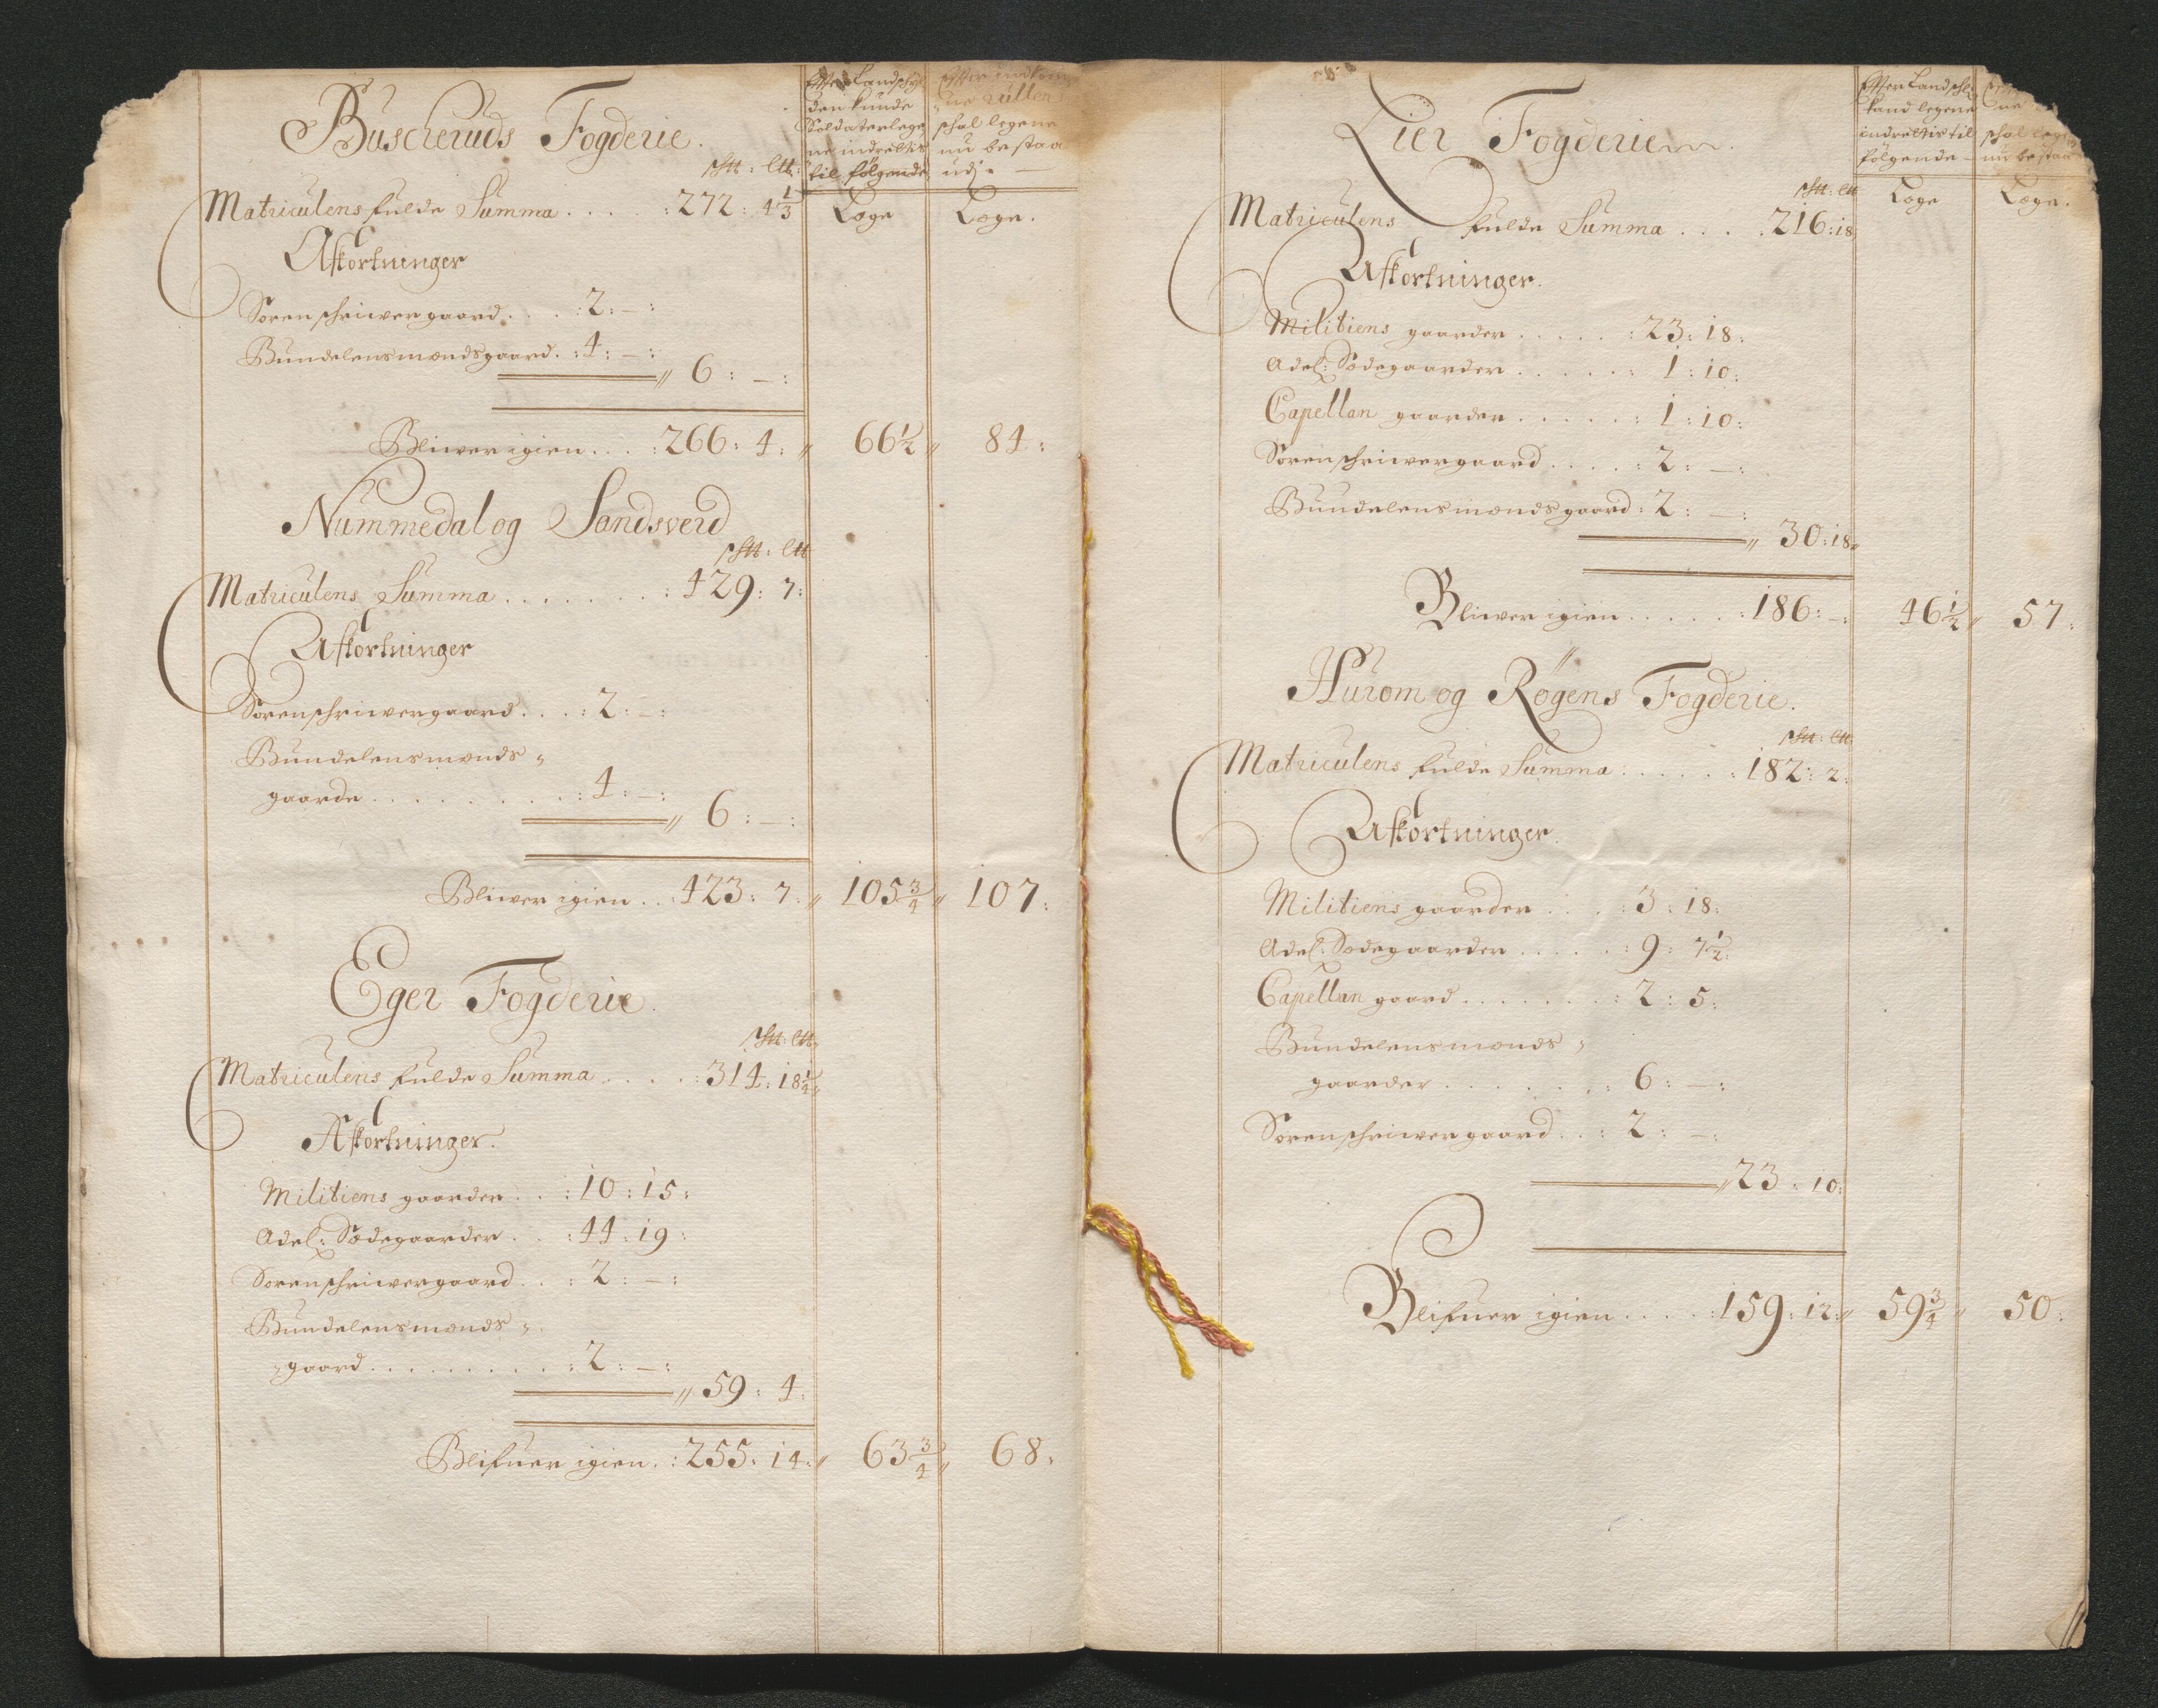 Buscheruds Fogderie.
Effter Landschyl
den kunde
Soldaterlege
ne indrettis
til følgende
Effter indkom
ne Rullen
schal legene
nu bestaa
udj
Matriculens fulde Summa . . . . : 272: 4 1/3
Læge
Læge.
Afkortninger
Sorenschriwergaard . . . : 2: — :
Bundelensmandsgaard. : 4: — :
6: — :
Bliwer igien . . . : 266: 4: 66 1/2 84:
Nummedal og Sandsverd
Matriculens Summa . . . . . . . : 429: 7:
Afkortninger
Sorenschriwergaard . . . : 2: — :
Bundelensmands
gaarde . . . . . . . . . : 4: — :
6: — :
Bliwer igien . . : 423: 7: 105 3/4 107:
Eger Fogderie.
Matriculens fulde Summa . . . . : 314: 18 1/4
Afkortninger.
Militiens gaarder . . . : 10: 15:
Adel: Sædegaarder . . . : 44: 19:
Sorenschriwergaard . . : 2: — :
Bundelensmands
gaard . . . . . . . . . : 2: — :
59: 4:
Blifuer igien . : 255: 14: 63 3/4 68:
Lier Fogderie
Effter Landschl
kand legene
indrettis til
følgende
ne
schal lege
nu bestaa
Matriculens fulde Summa . . . . : 216: 18
Læge
Læge.
Afkortninger.
Militiens gaarder . . . . . : 23: 18:
Adel: Sædegaarder . . . . . : 1: 10:
Capellan gaarder . . . . . : 1: 10:
Sorenschriwergaard . . . . : 2: — :
Bundelensmandsgaard : 2: — :
30: 18
Bliwer igien . . . . . : 186: — : 46 1/2 57:
Hurom og Røgens Fogderie.
Matriculens fulde Summa . . . . . : 182: 2:
Afkortninger.
Militiens gaarder . . . : 3: 18:
Adel: Sædegaarder . . . . . : 9: 7 1/2:
Capellan gaard . . . . . . . : 2: 5:
Bundelensmands
gaarder . . . . . . . : 6: — :
Sorenschriwergaard . . : 2: — :
23: 10:
Blifuer igien . . . . : 159: 12: 59 3/4 50: